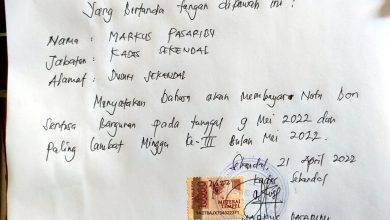 Yang Bertanda tangan dibawah ini :
Nama : MARKUS PASARIBU
Jabatan : KADES SEKENDAL
Alamat : DUSUN SEKANDAL
Menyatakan Bahwa akan Membayar Nota Bon
Sentosa Bangunan pada tanggal 9 Mei 2022 dan
Paling Lambat Minggu Ke-III Bulan Mei 2022.
Sekendal, 21 April 2022
Kades Sekendal
10000
METERAI
TEMPEL
MARKUS PASARIBU